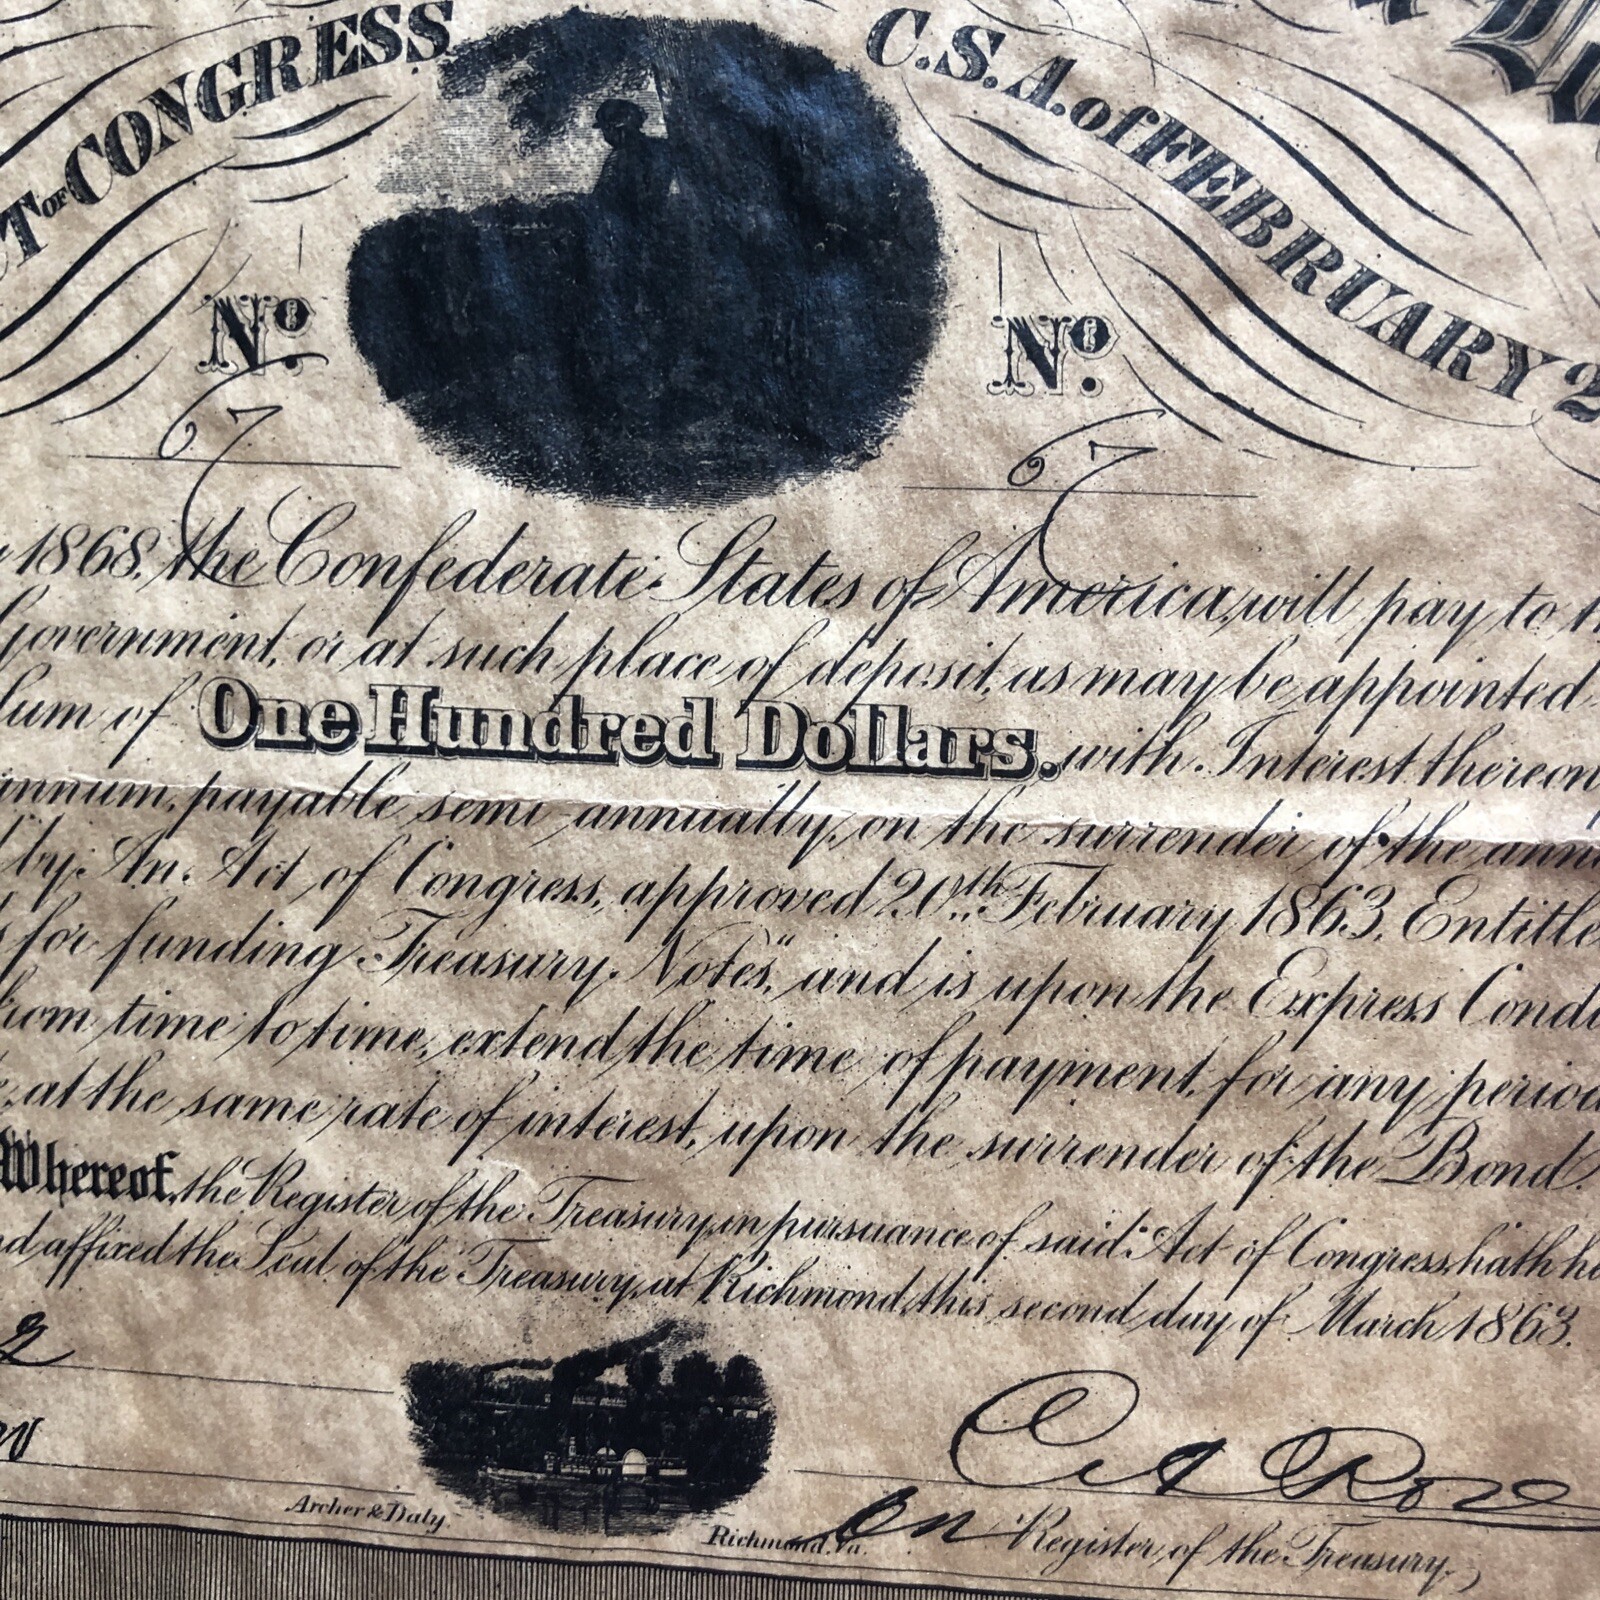 ACT OF CONGRESS C.S.A. of FEBRUARY 2
No. No.
67 67
1868, the Confederate States of America, will pay to
Government, or at such place of deposit, as may be appointed
Sum of One Hundred Dollars. with Interest thereon
annum, payable semi annually, on the surrender of the
by An Act of Congress, approved 20th February 1863, Entitle
for funding Treasury Notes", and is upon the Express Condi
from time to time, extend the time of payment, for any period
at the same rate of interest, upon the surrender of the Bond.
Whereof, the Register of the Treasury, in pursuance of said Act of Congress, hath
affixed the Seal of the Treasury, at Richmond, this second day of March 1863.
C A Rose
Archer & Daly. Richmond, Va. Register, of the Treasury,